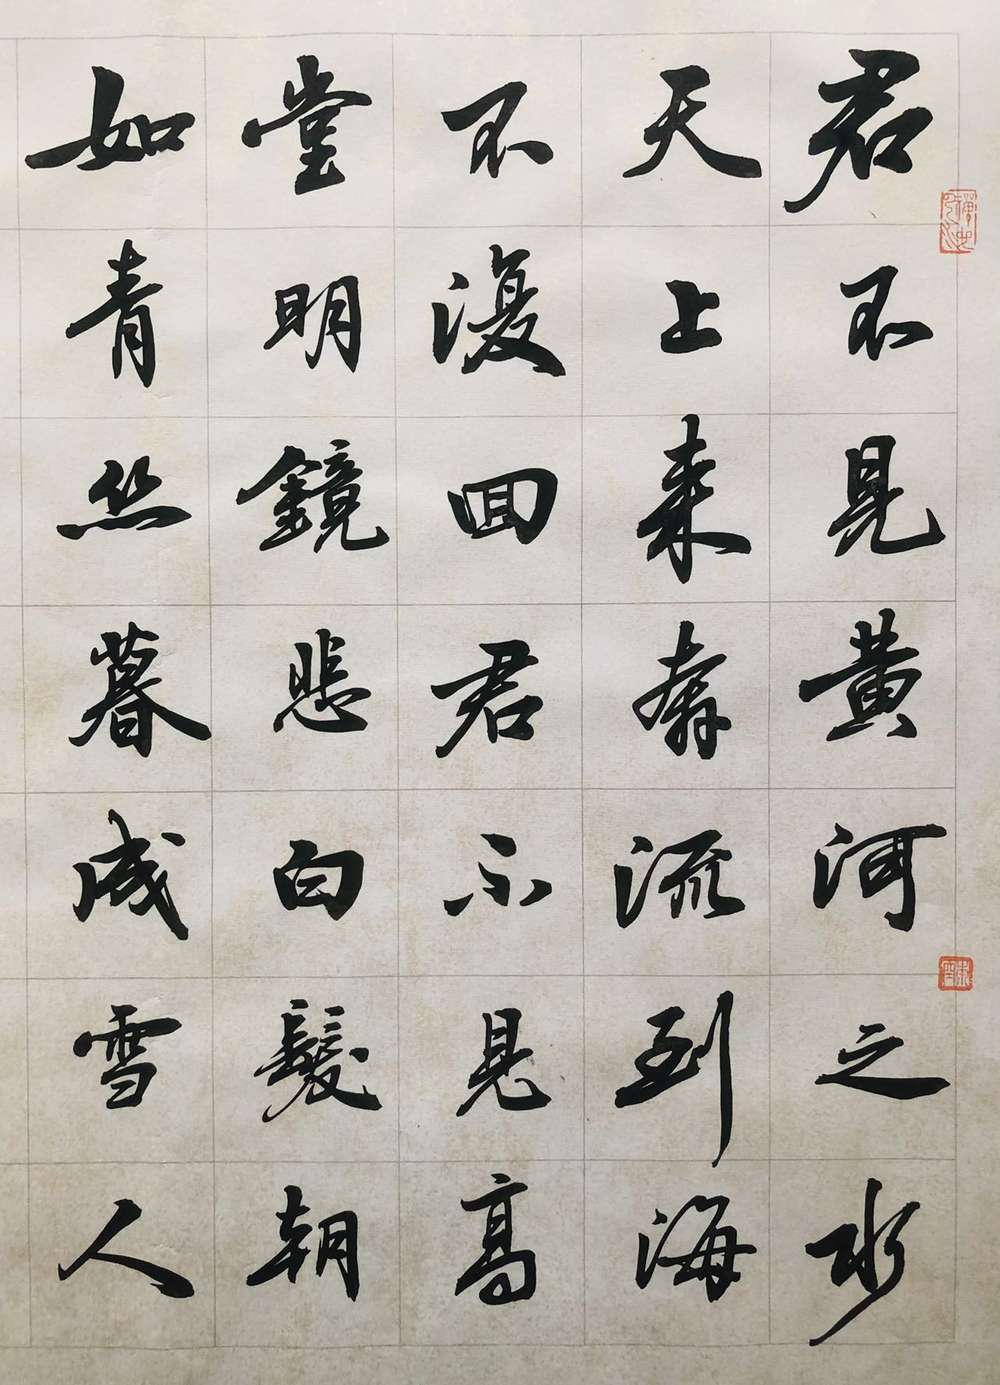 君不見黄河之水
天上来奔流到海
不復回君不見高
堂明鏡悲白髮朝
如青丝暮成雪人